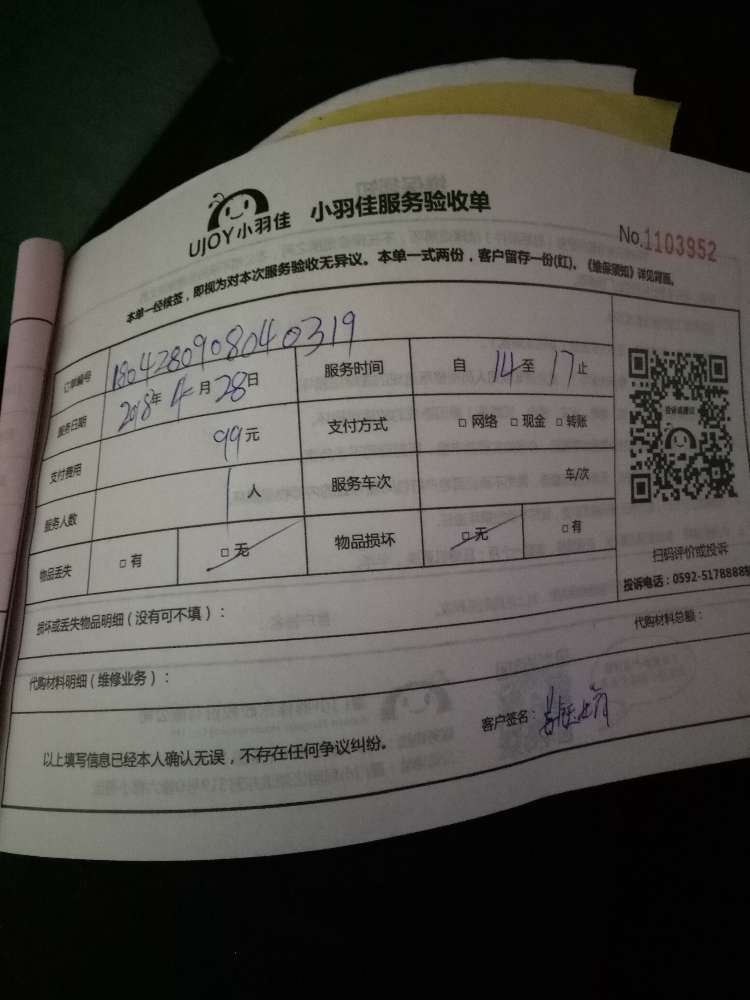 UJOY小羽佳 小羽佳服务验收单
No.1103952
本单一经核签，即视为对本次服务验收无异议。本单一式两份，客户留存一份(红)、《维保须知》详见背面。
订单编号 1804280908040319 服务时间 自 14 至 17 止
服务日期 2018年 4 月 28 日
支付费用 99 元 支付方式 □ 网络 □ 现金 □ 转账
服务人数 1 人 服务车次 车/次
物品丢失 □ 有 □ 无 物品损坏 □ 无 □ 有
投诉或建议
扫码评价或投诉
投诉电话：0592-5178888
损坏或丢失物品明细（没有可不填）：
代购材料明细（维修业务）： 代购材料总额：
以上填写信息已经本人确认无误，不存在任何争议纠纷。 客户签名：